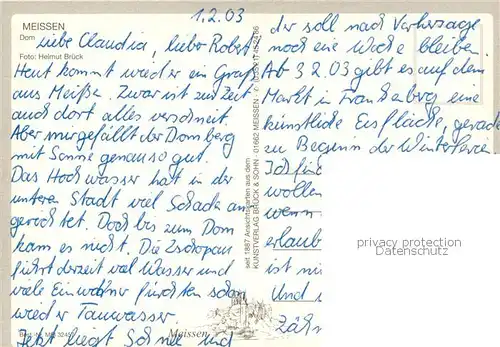 MEISSEN
Dom
Foto: Helmut Brück
1.2.03
Liebe Claudia, lieber Robert!
Heut kommt wieder ein Gruß
aus Meißen. Zwar ist zur Zeit
auch dort alles verschneit.
Aber mir gefällt der Domberg
mit Sonne genauso gut.
Das Hochwasser hat in der
unteren Stadt viel Schaden an-
gerichtet. Doch bis zum Dom
kam es nicht. Die Zschopau
führt derzeit viel Wasser und
viele Einwohner fürchten schon
wieder Tauwasser.
Jetzt liegt Schnee und
der soll nach Vorhersage
noch eine Woche bleiben.
Ab 3.2.03 gibt es auf dem
Markt in Frankenberg eine
künstliche Eisfläche, gerade
zu Beginn der Winterferien
Ich
wollen
wenn
erlaub
ist mi
Und
Zähn
seit 1887 Ansichtskarten aus dem
KUNSTVERLAG BRÜCK & SOHN · 01662 MEISSEN
Meissen
privacy protection
Datenschutz